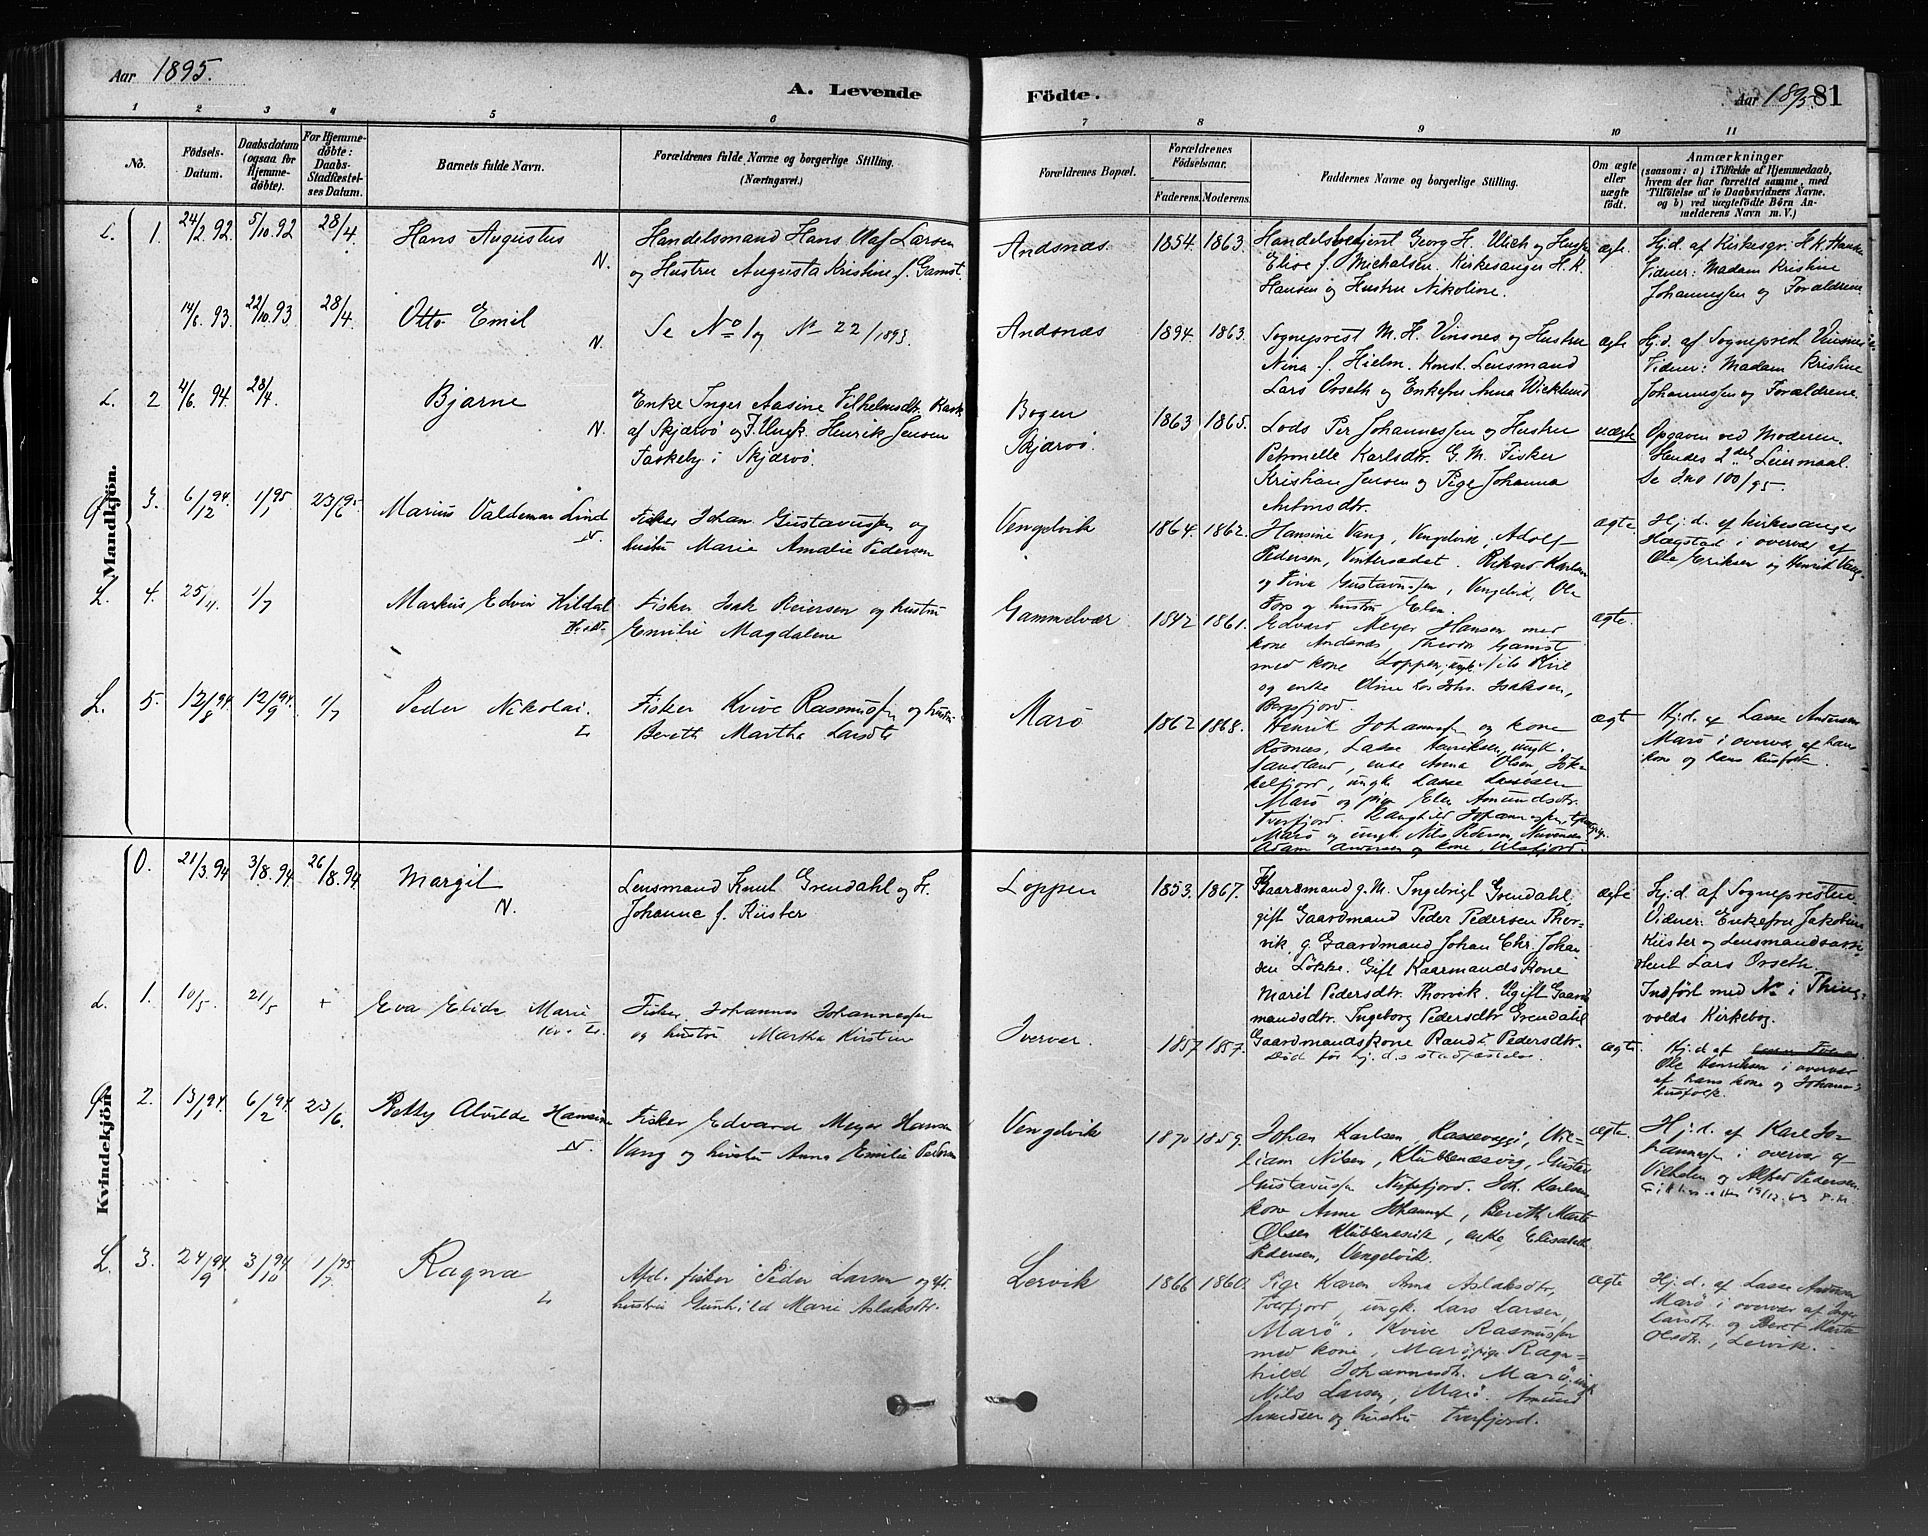 Aar 1895.
A. Levende
Födte.
Aar 1895
81
1
2
3
4
5
6
7
8
9
10
11
No.
Födsels-
Datum.
Daabsdatum
(ogsaa for
Hjemme-
döbte).
For Hjemme-
döbte:
Daabs-
Stadfæstel-
ses Datum.
Barnets fulde Navn.
Forældrenes fulde Navne og borgerlige Stilling.
(Næringsvei.)
Forældrenes Bopæl.
Forældrenes
Födselsaar.
Faderens.
Moderens.
Faddernes Navne og borgerlige Stilling.
Om ægte
eller
uægte
födt.
Anmærkninger
(saasom: a) i Tilfælde af Hjemmedaab,
hvem der har forrettet samme, med
Tilföielse af to Daabsvidners Navne.
og b) ved uægtefödte Börn An-
melderens Navn m. V.)
Mandkjön.
L. 1. 24/2. 92. 5/10. 92 28/4. Hans Augustus
N.
Handelsmand Hans Olaf Larsen
og Hustru Augusta Kristine f. Gamst.
Andsnæs. 1854. 1863.
Handelsbetjent Georg H. Ulich og Hustru
Elise f. Michalsen. Kirkesanger H. K.
Hansen og Hustru Nikoline.
ægte.
Hj.d. af Kirkesgr. H. K. Hansen
Vidner: Madam Kristine
Johannessen og Forældrene
14/6. 93. 22/10. 93. 28/4. Otto Emil
N.
Se No 1 og No 22/1893.
Andsnæs 1894. 1863.
Sogneprest M. H. Vinsnes og Hustru
Nina f. Hielm. Konst. Lensmand
Lars Orseth og Enkefru Anna Wicklund
ægte
Hj.d. af Sogneprest Vinsnes
Vidner: Madam Kristine
Johannessen og Forældrene
L. 2 4/6. 94. 28/4. Bjarne
N.
Enke Inger Aasine Vilhelmsdtr.
af Skjærvö og F. Ungk. Henrik Jensen
Taskeby i Skjærvö.
Bogen
Skjærvö.
1863 1865.
Lods Per Johannessen og Hustru
Petronelle Karlsdtr. G. M. Fisker
Kristian Jensen og Pige Johanna
Antonsdtr.
uægte
Opgaven ved Moderen.
Hendes 2det Leiermaal.
Se Ind 100/95.
3. 6/12 94. 1/1 95 23/6 95. Marius Valdemar Lind
N
Fisker Johan Gustavussen og
hustru Marie Amalie Pedersen
Vengelvik 1864. 1862.
Hansine Vang, Vengelvik, Adolf
Pedersen, Vintersædet. Rikard Karlsen
og Fina Gustavussen, Vengelvik, Ole
Fors og hustru Elen.
ægte.
Hj. d. af kirkesanger
Hægstad i overvær af
Ole Eriksen og Henrik Vang.
L. 4. 25/4. 1/7 Markus Edvin Kildal
Fisker Isak Reiersen og hustru
Emilie Magdalene
Gammelvær 1842 1861.
Edvard Meyer Hansen med
kone Andsnæs, Theodor Gamst
med kone Loppen, ungk. Nils Kiil
og enke Oline Isaksen,
Bergsfjord.
ægte.
L. 5. 12/8 94. 12/9 94. 1/7 Peder Nikolai.
L
Fisker Kvive Rasmussen og hustru
Bereth Martha Larsdtr
Marö 1862 1868.
Henrik Johannsen og kone
Rösnæs, Lasse Henriksen, ungk.
Sandland, enke Anna Olsen, Jök-
kelfjord, ungk. Lasse Lassesen
Marö og pige Elen Amundsdtr.
Tverfjord. Ragnhild Johannesdtr,
Marö og ungk. Nils Pedersen,
Adam Andersen og kone, Ulsfjord.
ægte
Hj.d. af Lasse Andersen
Marö i overvær af hans
kone og hans husfolk.
Kvindekjön.
0. 21/3.94 3/8. 94. 26/8. 94 Margit
N.
Lensmand Knut Grendahl og H.
Johanne f. Küster
Loppen 1853. 1867.
Gaardmand g. M. Ingebrigt Grendahl,
gift Gaardmand Peder Pedersen Thor-
vik, g. Gaardmand Johan Chr. Johan-
sen Lökke. Gift Kaarmandskone
Marit Pedersdtr. Thorvik. Ugift Gaard-
mandsdtr. Ingeborg Pedersdtr Grendahl
Gaardmandskone Randi Pedersdtr.
ægte
Hj.d. af Sognepresten.
Vidner: Enkefru Jakobine
Küster og Lensmandsassi-
stent Lars Orseth.
Indfört med No i Thing-
volds Kirkebog.
L. 1. 10/5. 21/5 + Eva Elida Marie
Fisker Johannes Johannessen
og hustru Martha Kirstine
Iverver. 1857 1857.
Död för hj.d.s stadfæstelse.
ægte.
Hj.d. af
Ole Henriksen i overvær
af hans kone og Johann
husfolk.
2. 13/1 94. 6/2 94. 23/6. Betty Alvilde Hansine
N.
Fisker Edvard Meyer Hansen
Vang og hustru Anna Emilie Pedersen
Vengelvik 1870 1859.
Johan Karlsen, Wil-
liam Nilsen, Klubbenæsvig, Gustav
Gustavussen Nefjord. Joh. Karlsen
kone Anne Johannes, Bereth Marte
Olsen Klubbenæsvik, enke Elisabeth
Pedersen, Vengelvik.
ægte.
Hj. d. af Karl Jo-
hannessen i overvær af
Vilhelm og Alfred Pedersen.
L. 3. 24/9 94 3/10 94 1/7 95 Ragna
L
Afd. fisker Peder Larsen og
hustru Gunhild Marie Aslaksdtr.
Lervik 1866 1860.
Pige Karen Anna Aslaksdtr,
Tverfjord, ungk. Lars Larsen,
Marö, Kvive Rasmussen
med kone, Marö, pige Ragn-
hild Johannesdtr. Marö, ungk.
Nils Larsen, Marö. Amund
Amundsen og hustru Tverfjord.
ægte
Hj. d. af Lasse Andersen
Marö i overvær af Inger
Larsdtr. og Beret Marta
Olsdtr., Lervik.